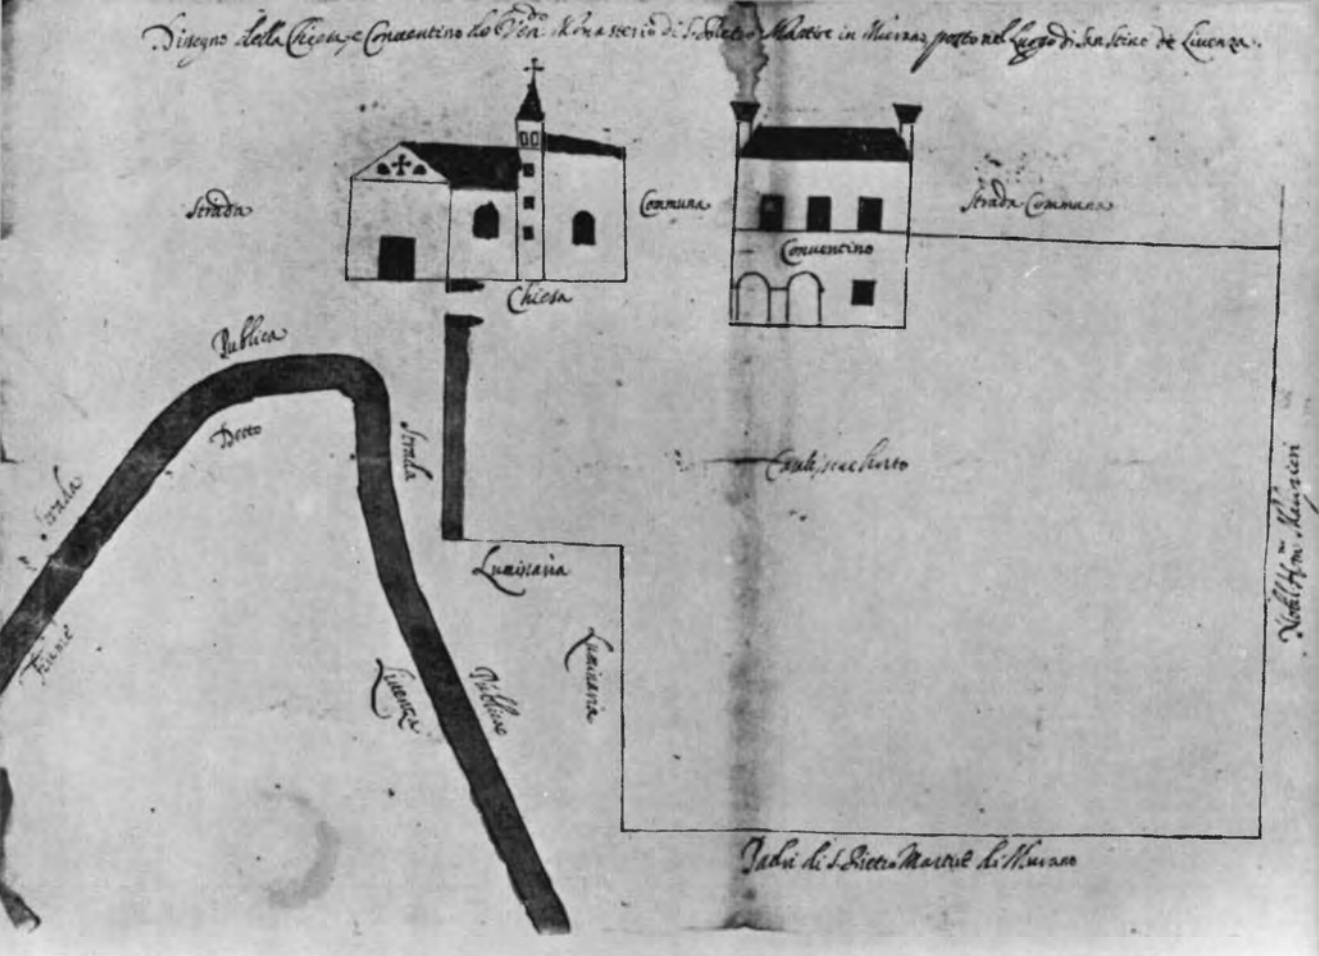 Disegno della Chiesa, e Conuentino do Vndo. Monasterio di S. Pietro Martire in Muran, posto nel Luogo di San Stino de Liuenza.
Strada
Communa
Strada Commana
Conuentino
Chiesa
Publica
Detto
Strada
Strada
horto
Nobil Hm.
Luminaria
Luminaria
Fiume
Liuenza
Publica
Padri di S. Pietro Martire di Murano